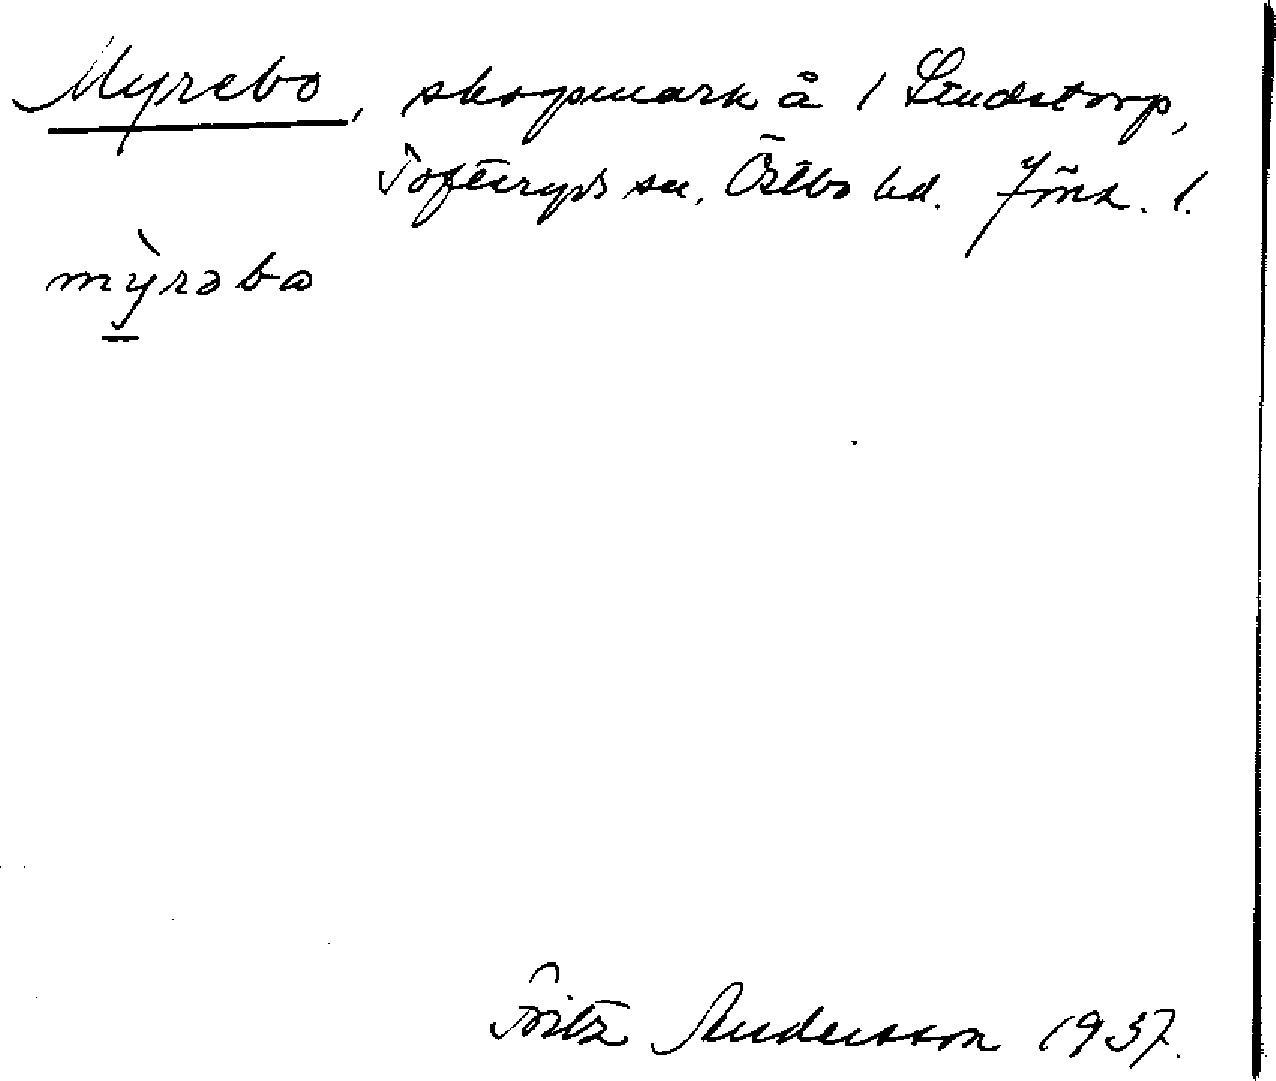 Myrebo, skogsmark å 1 Lindstorp,
Tofteryds sn. Östbo hd. Jönk. l.
mỳ̠rəbω
Fritz Andersson 1937.